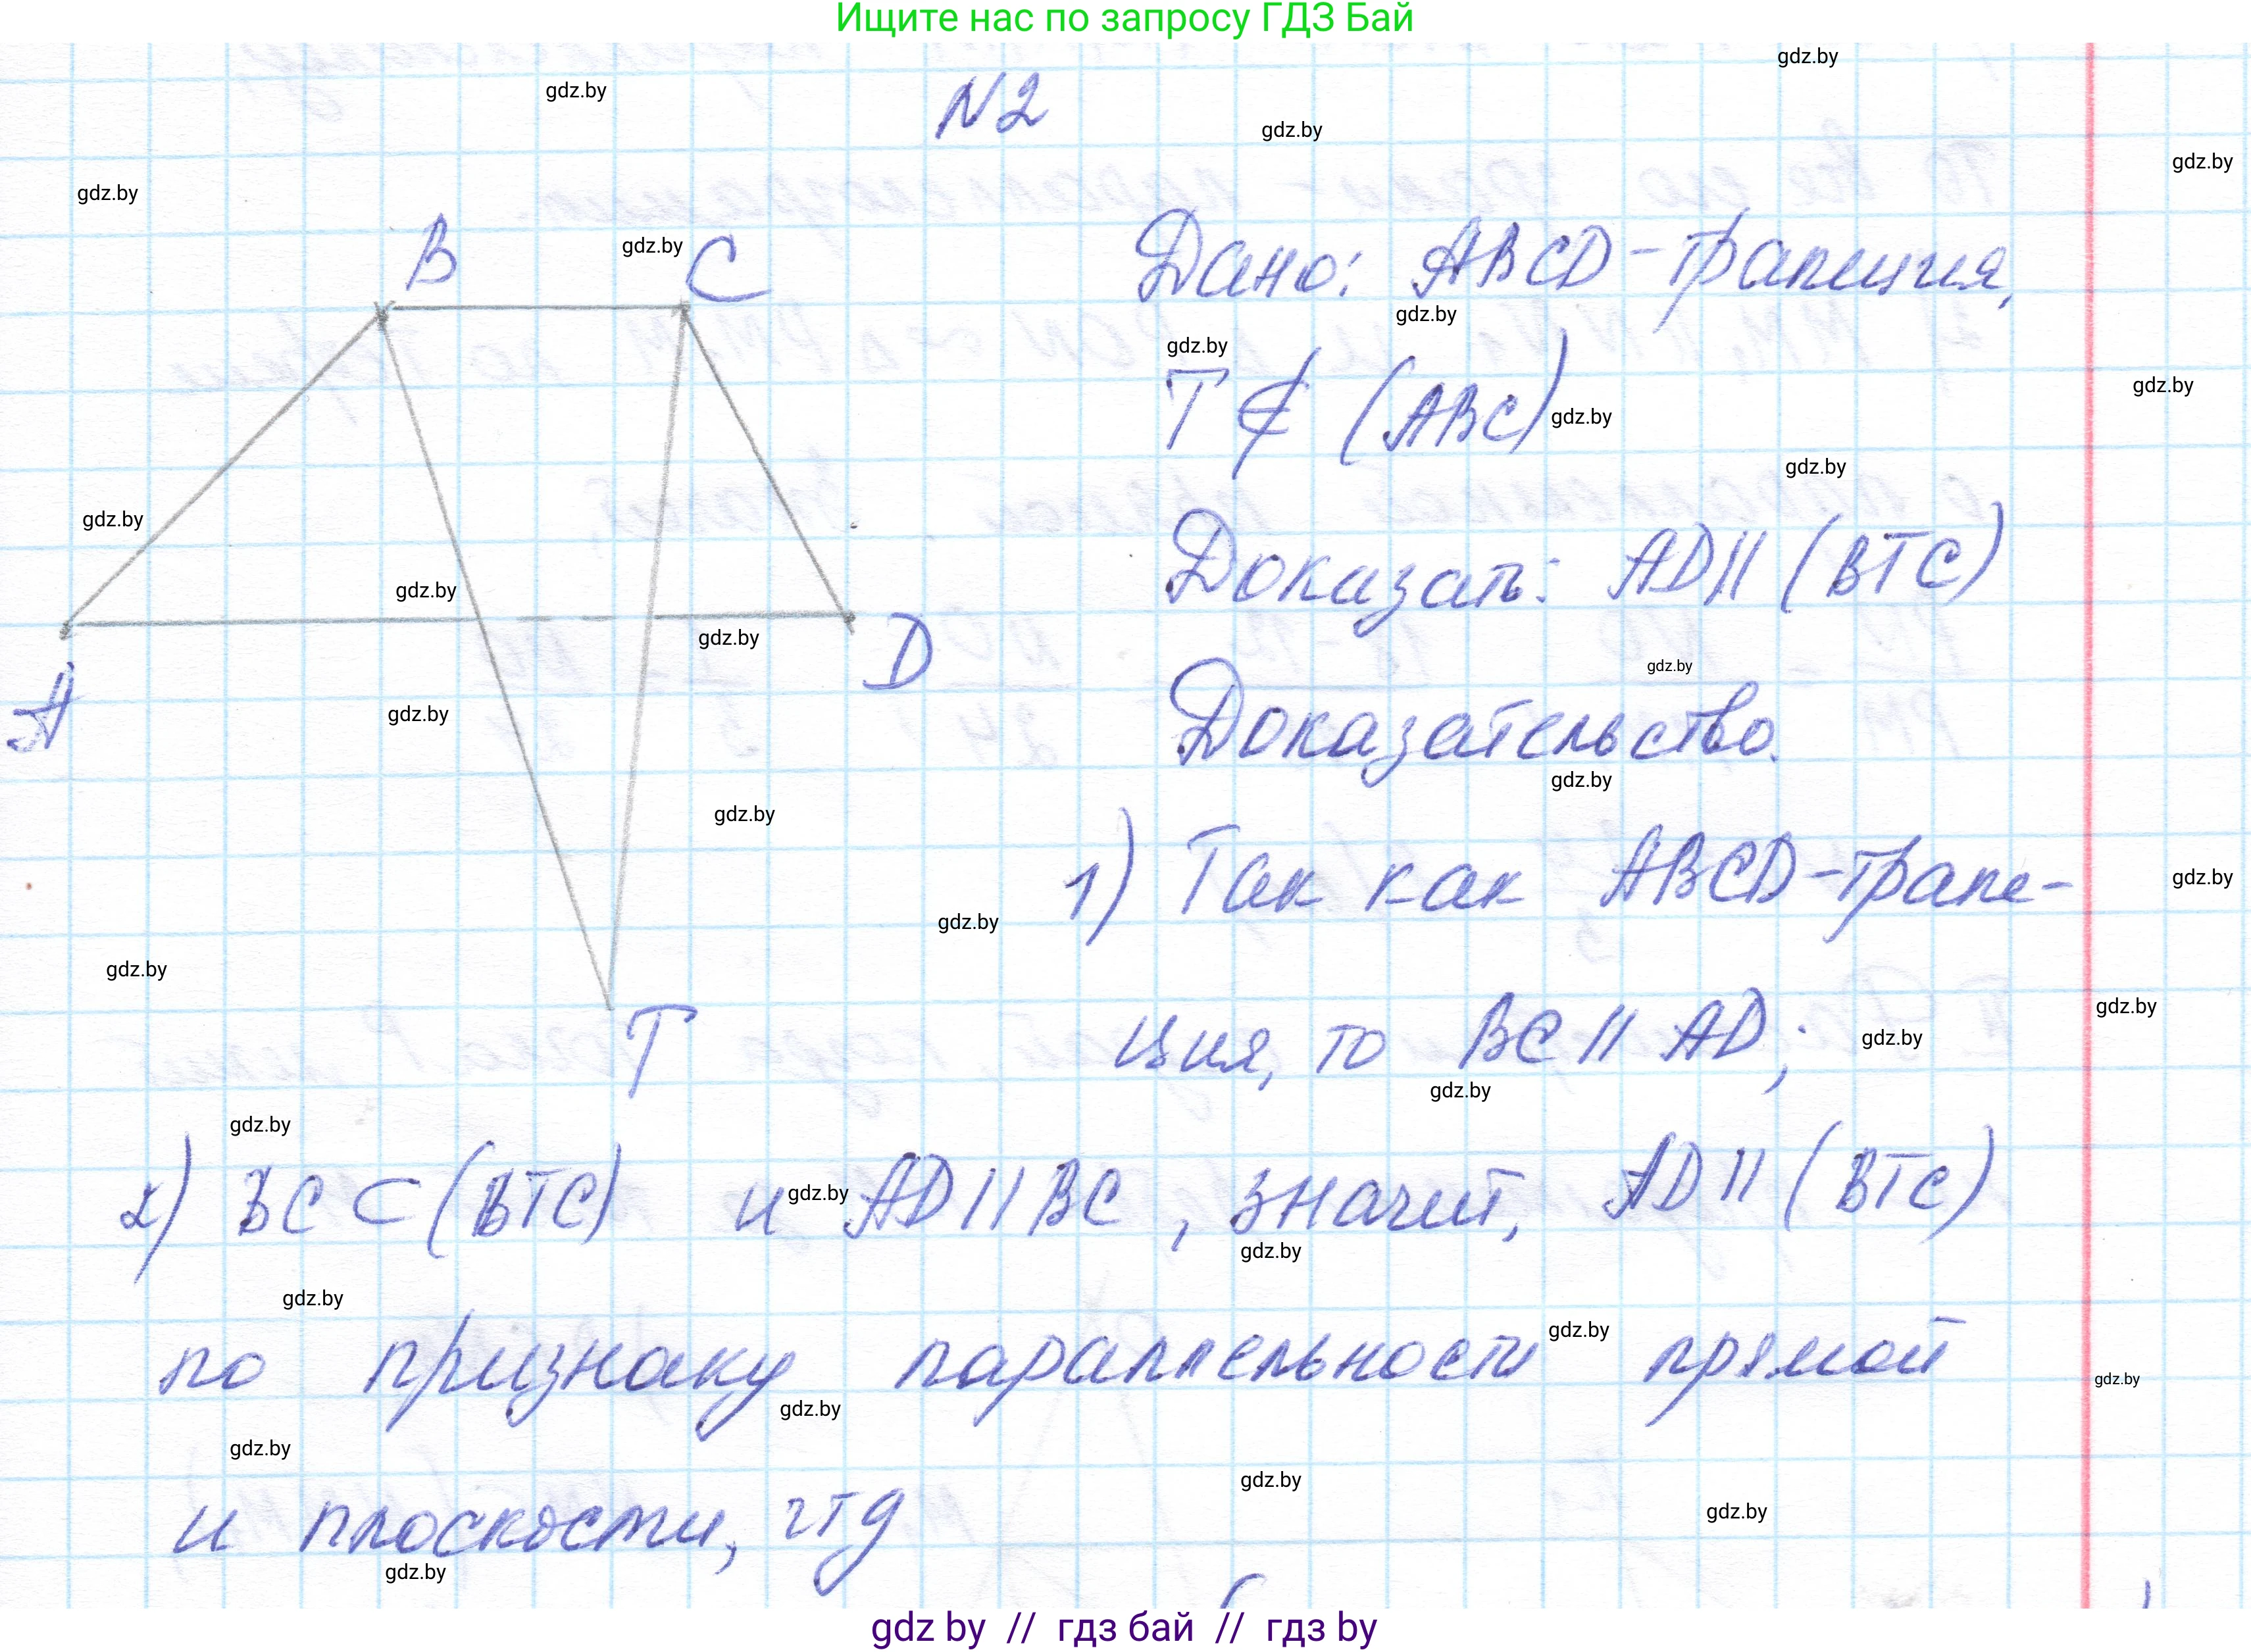 Ищите нас по запросу ГДЗ Бай
gdz.by
gdz.by
N2
gdz.by
gdz.by
gdz.by
B
gdz.by
C
Дано: ABCD - трапеция,
gdz.by
gdz.by
T ∉ (ABC)
gdz.by
gdz.by
gdz.by
gdz.by
Доказать: AD || (BTC)
gdz.by
gdz.by
D
gdz.by
A
gdz.by
Доказательство.
gdz.by
gdz.by
1) Так как ABCD - трапе-
gdz.by
gdz.by
gdz.by
gdz.by
T
ция, то BC || AD;
gdz.by
gdz.by
gdz.by
2) BC ⊂ (BTC) и AD || BC, значит, AD || (BTC)
gdz.by
gdz.by
gdz.by
gdz.by
по признаку параллельности прямой
gdz.by
gdz.by
gdz.by
gdz.by
gdz.by
и плоскости, чтд
gdz.by
gdz by // гдз бай // гдз by